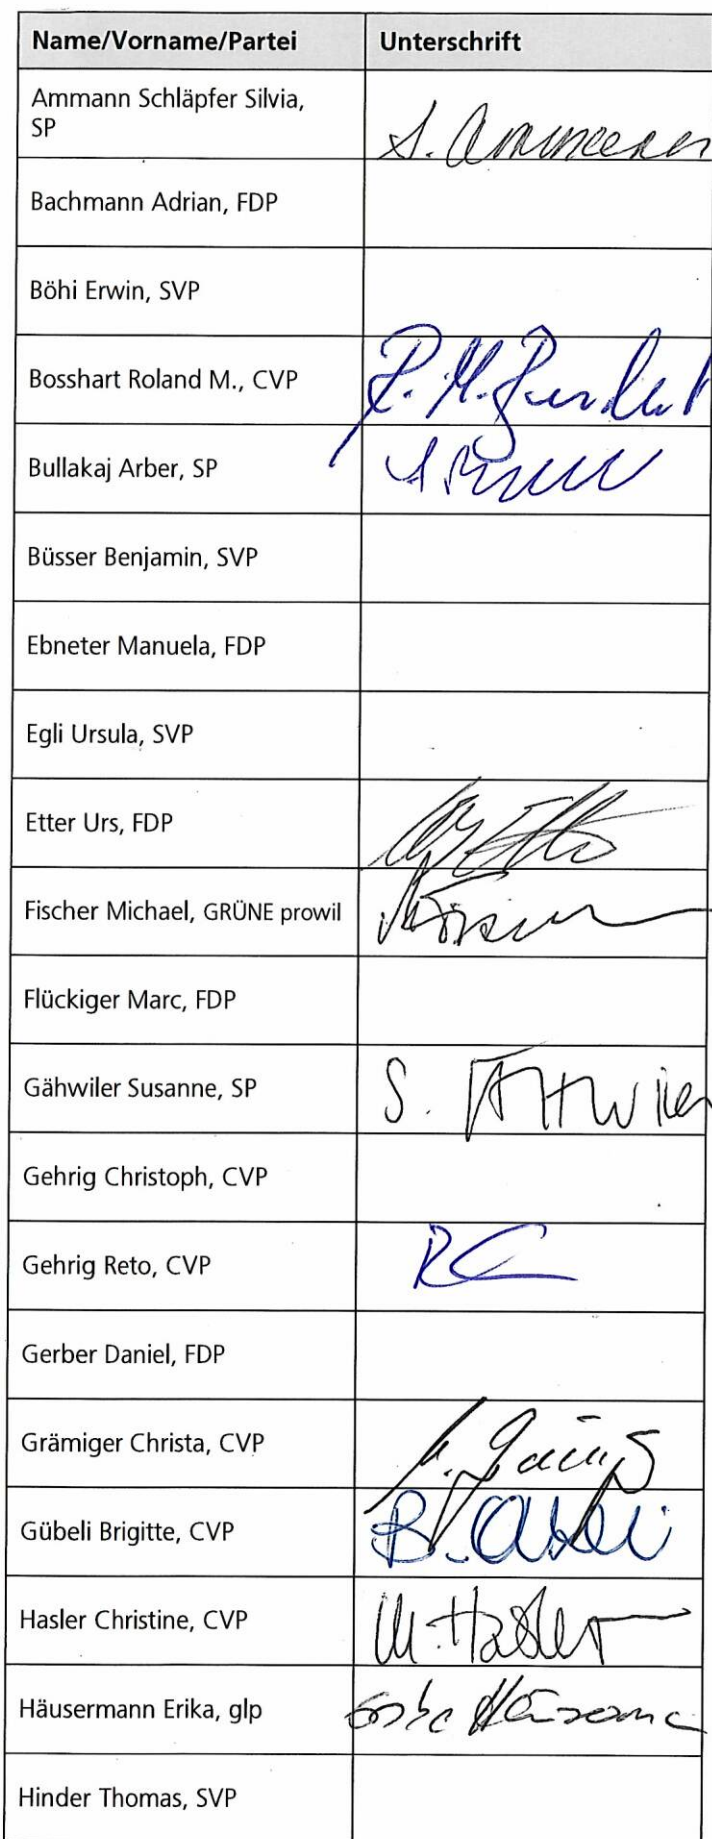 Name/Vorname/Partei Unterschrift
Ammann Schläpfer Silvia,
SP S. Ammann
Bachmann Adrian, FDP
Böhi Erwin, SVP
Bosshart Roland M., CVP R. M. Bosshart
Bullakaj Arber, SP
Büsser Benjamin, SVP
Ebneter Manuela, FDP
Egli Ursula, SVP
Etter Urs, FDP
Fischer Michael, GRÜNE prowil
Flückiger Marc, FDP
Gähwiler Susanne, SP S.
Gehrig Christoph, CVP
Gehrig Reto, CVP
Gerber Daniel, FDP
Grämiger Christa, CVP
Gübeli Brigitte, CVP B.
Hasler Christine, CVP Hasler
Häusermann Erika, glp
Hinder Thomas, SVP